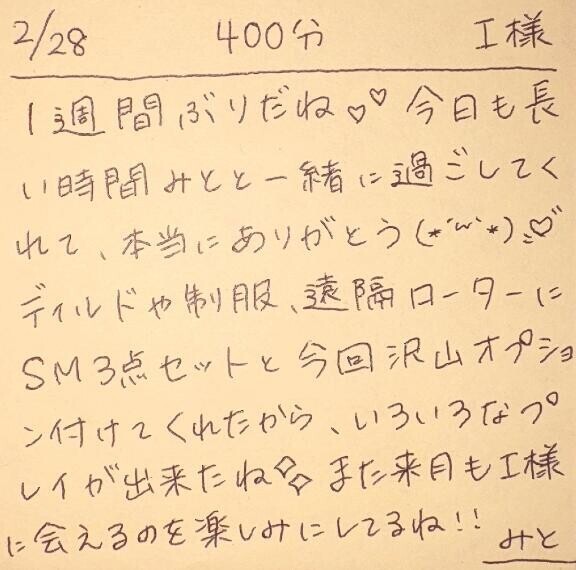 2/28 400分 I様
1週間ぶりだね♡♡ 今日も長
い時間みとと一緒に過ごしてく
れて、本当にありがとう(*´ω`*)♡
ディルドや制服、遠隔ローターに
SM3点セットと今回沢山オプショ
ン付けてくれたから、いろいろなプ
レイが出来たね✧✧ また来月もI様
に会えるのを楽しみにしてるね!!
みと